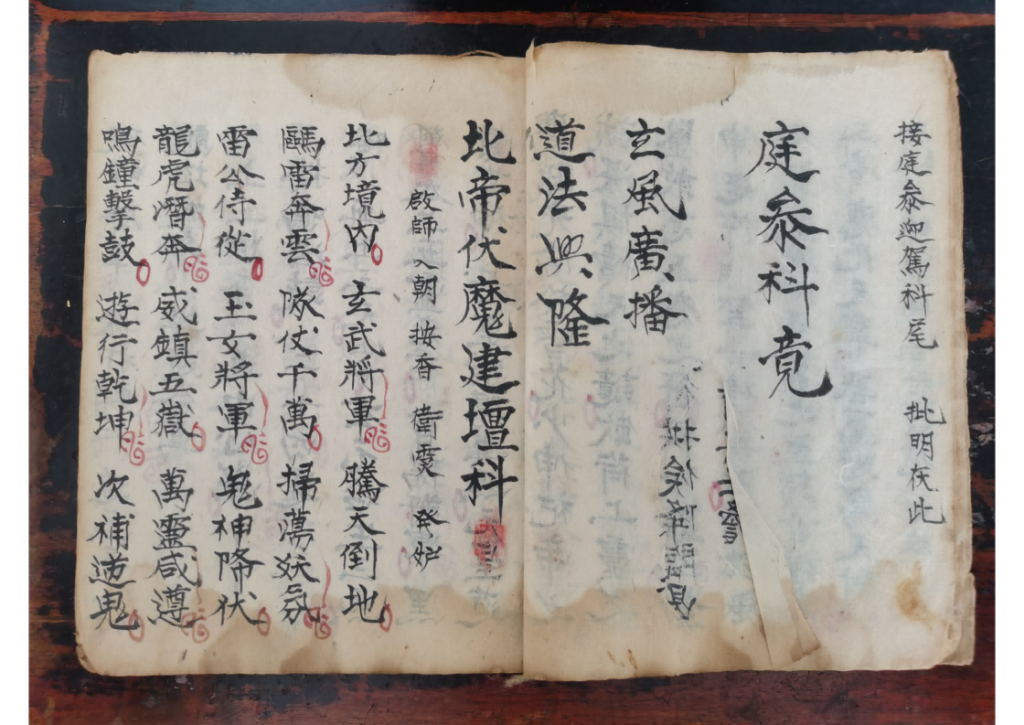 接庭叅迎駕科尾 批明在此
庭叅科竟
玄風廣播
道法興隆
北帝伏魔建壇科
啟師 入朝 按香 衛靈 發爐
北方境內 玄武將軍 騰天倒地
驅雷奔雲 隊仗千萬 掃蕩妖氛
雷公侍從 玉女將軍 鬼神降伏
龍虎潛奔 威鎮五嶽 萬靈咸遵
鳴鐘擊鼓 遊行乾坤 次補逆鬼